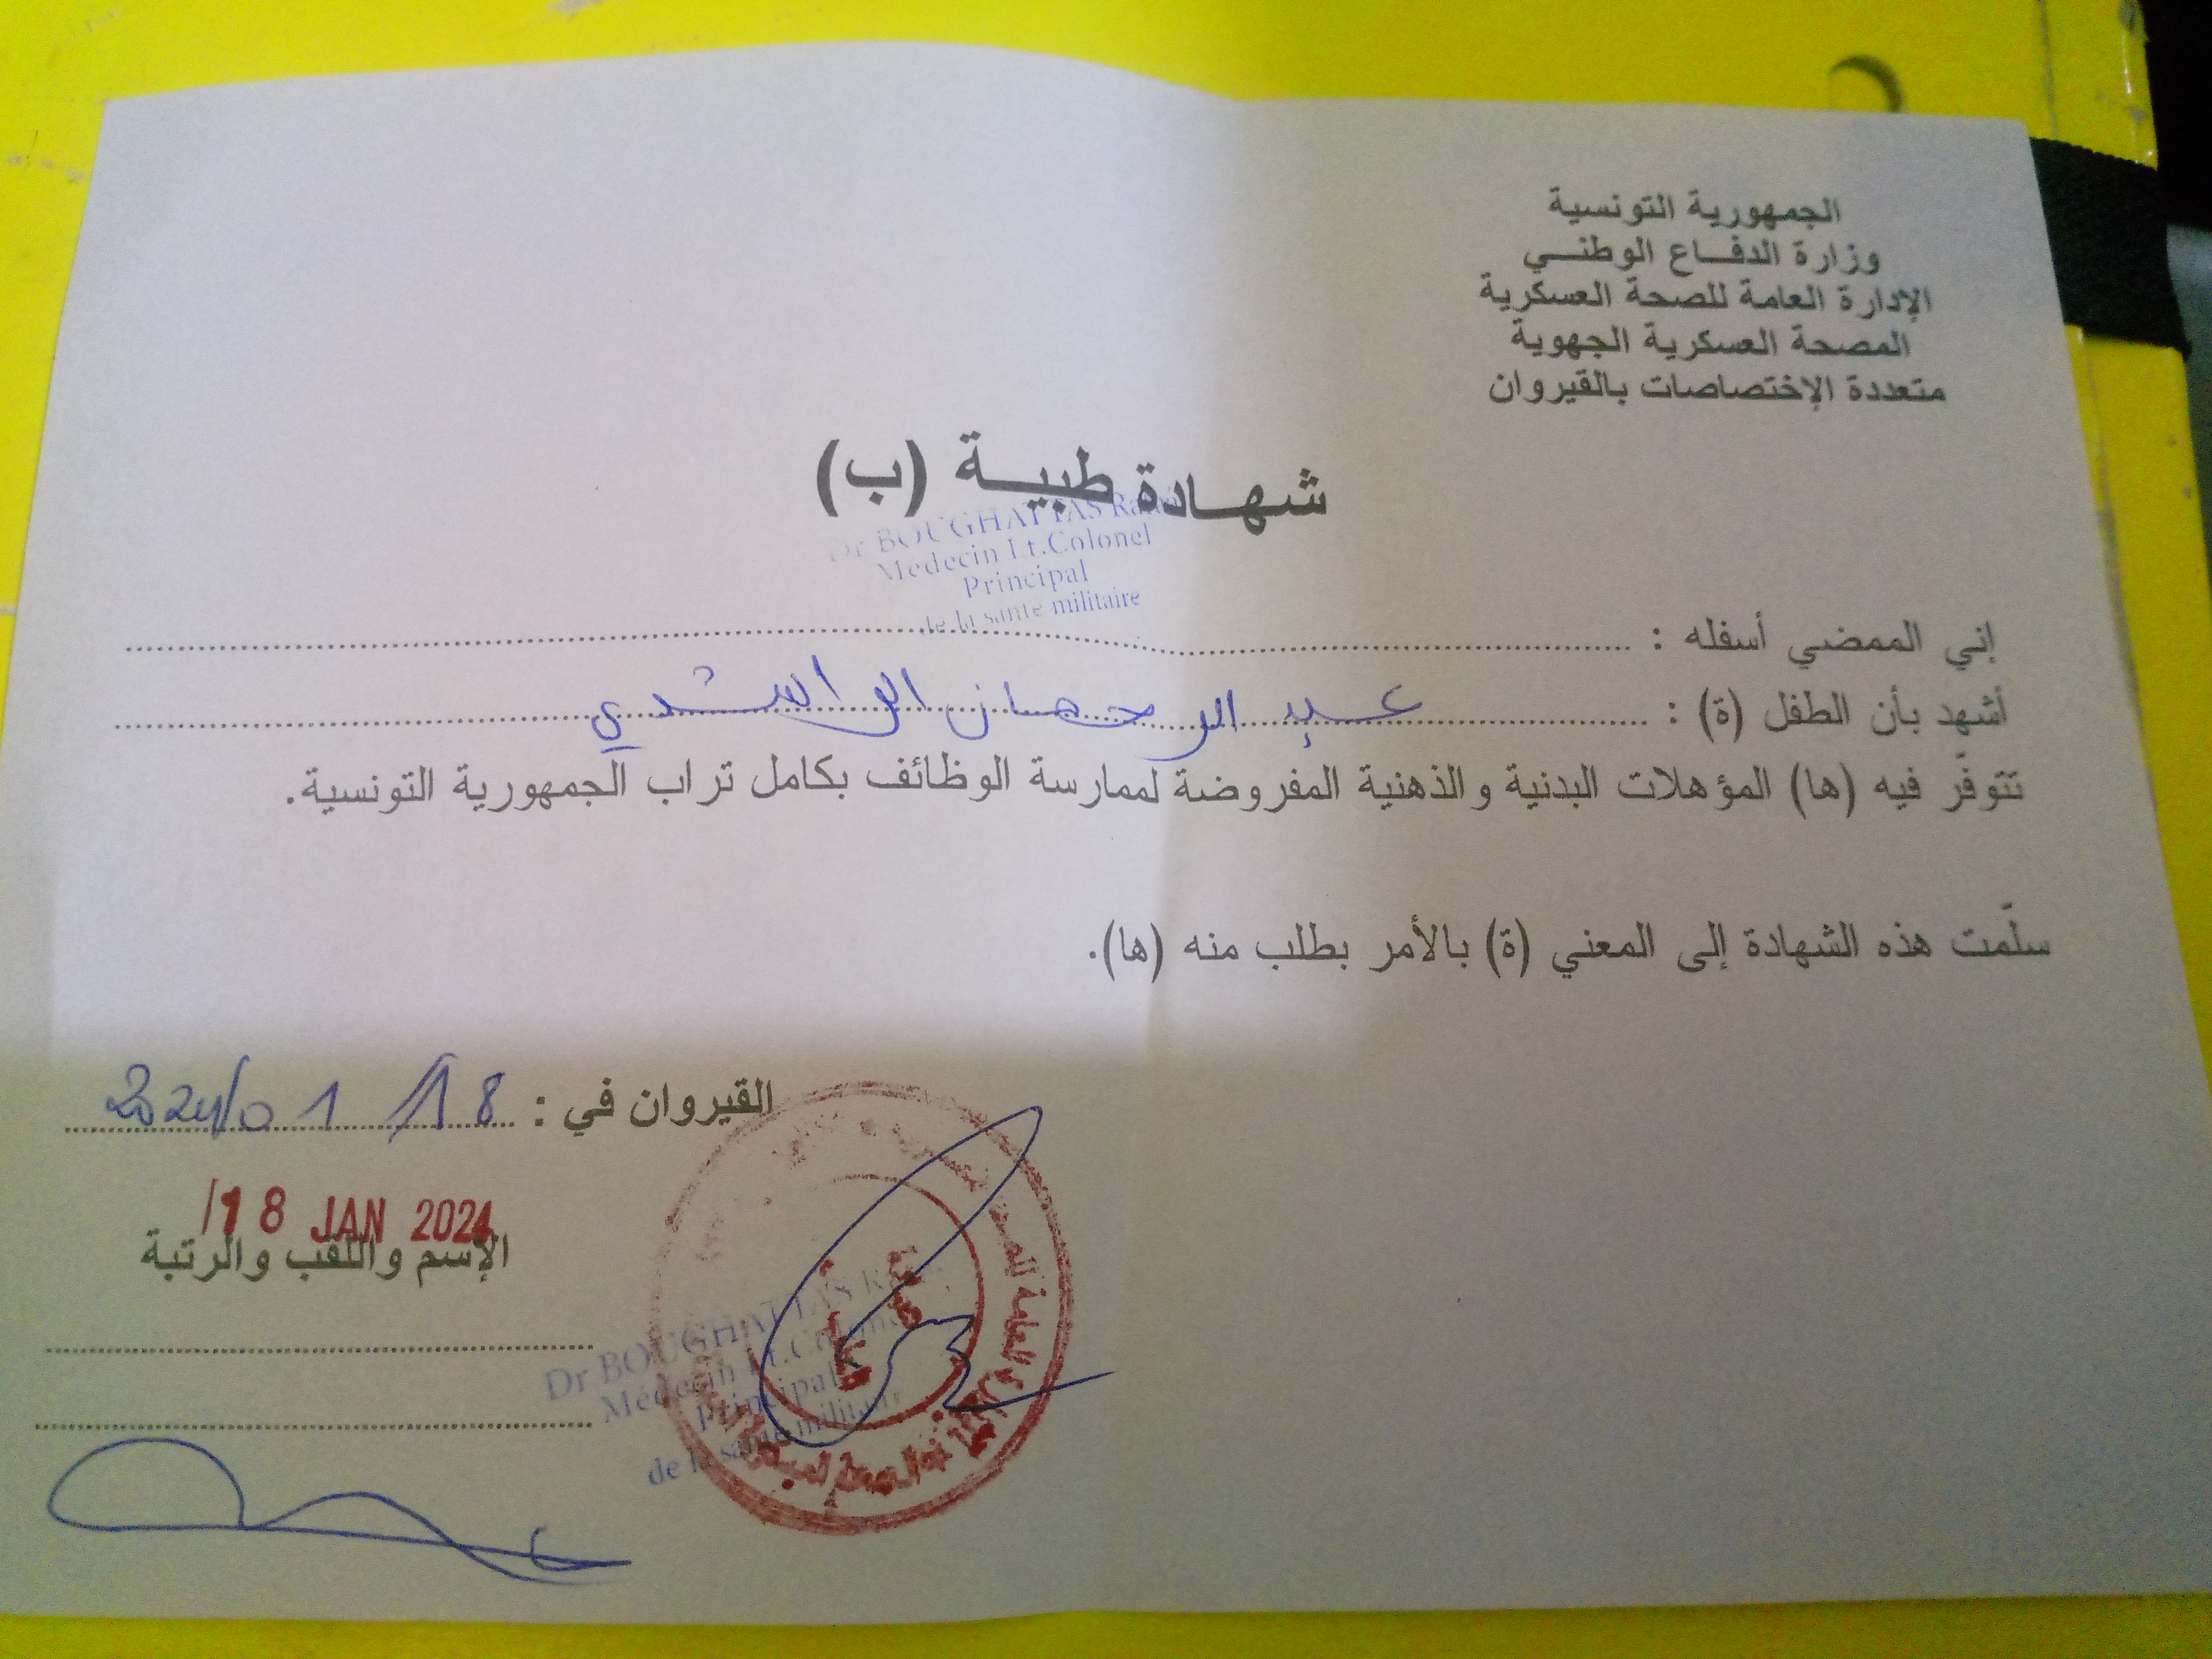 الجمهورية التونسية
وزارة الدفاع الوطني
الإدارة العامة للصحة العسكرية
المصحة العسكرية الجهوية
متعددة الإختصاصات بالقيروان
شهادة طبية (ب)
Dr BOUGHATTAS
Médecin Lt.Colonel
Principal
de la santé militaire
إني الممضي أسفله :
أشهد بأن الطفل (ة) : عبد الرحمان الراشدي
تتوفّر فيه (ها) المؤهلات البدنية والذهنية المفروضة لممارسة الوظائف بكامل تراب الجمهورية التونسية.
سلّمت هذه الشهادة إلى المعني (ة) بالأمر بطلب منه (ها).
القيروان في : 18/01/2024
18 JAN 2024
الإسم واللقب والرتبة
Dr BOUGHATTAS
Médecin Lt.Colonel
Principal
de la santé militaire